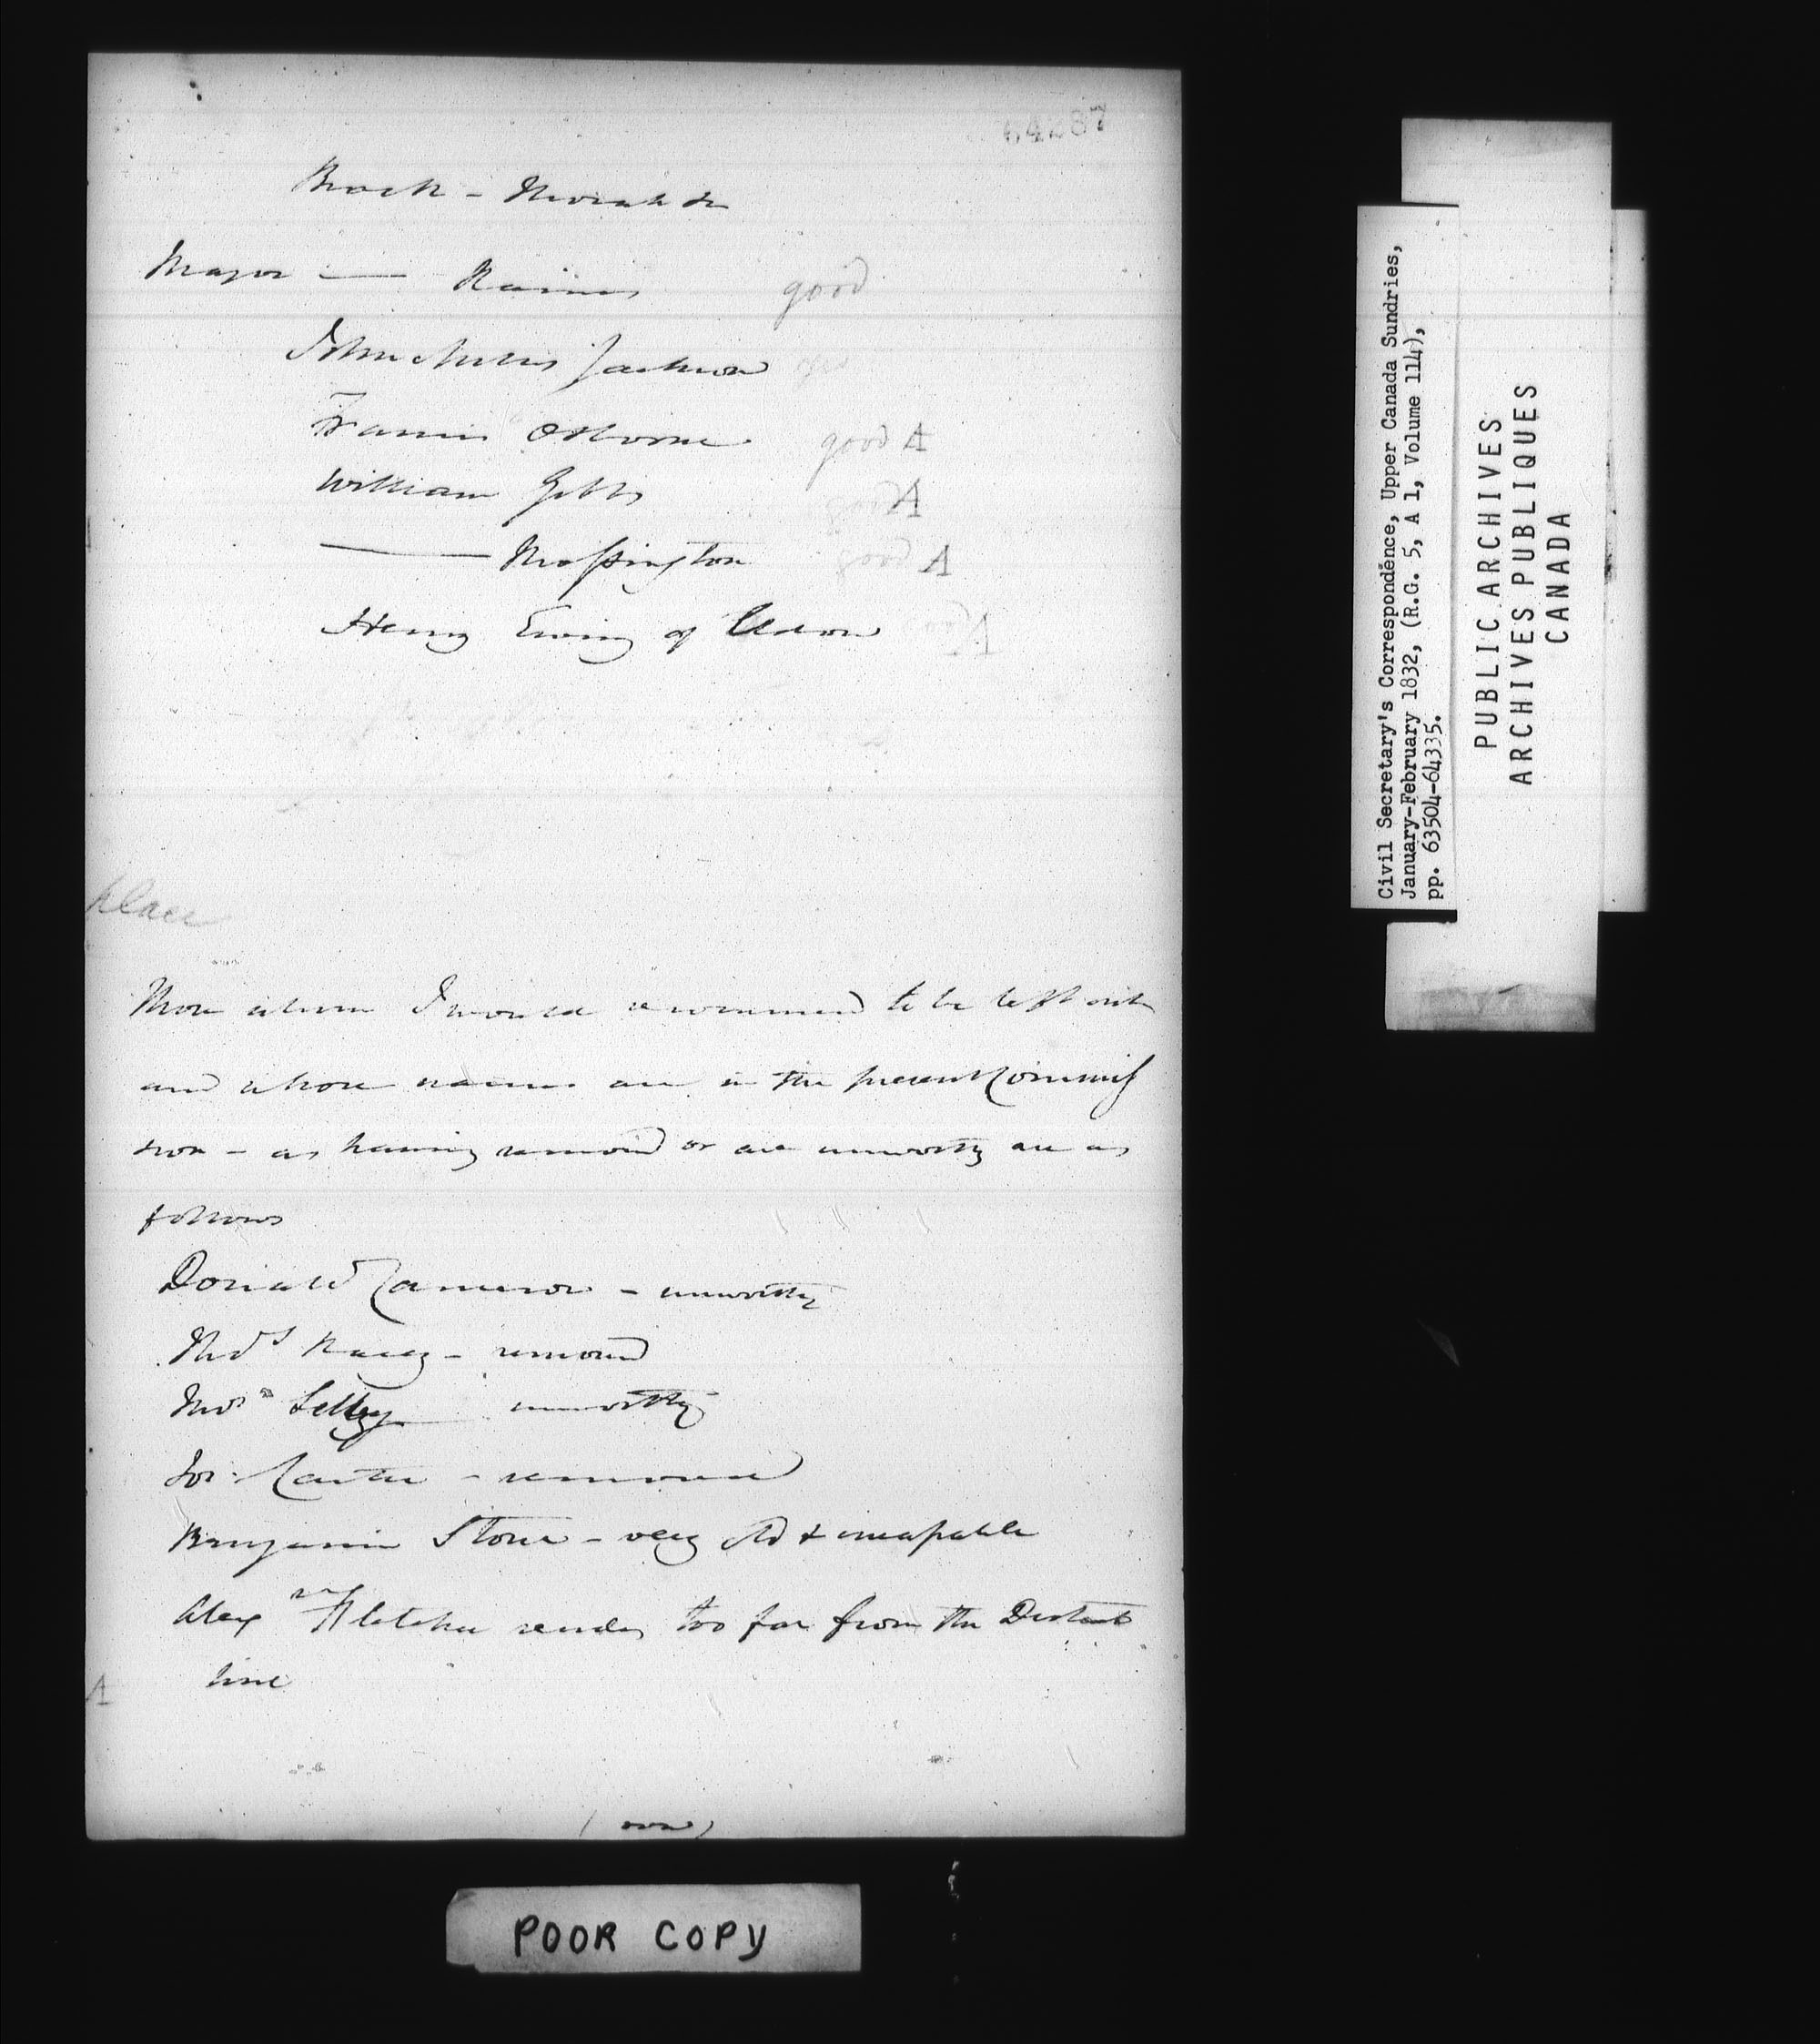 64287
Brock -
Major — Raines good
John Mills Jackson yes
Francis Osborne good A
William Gibbs good A
—— Mossington good A
Henry Ewing of good A
place
Those whom I would recommend to be left out
and whose names are in the present Commis
sion - as having removed or are unworthy are as
follows
Donald Cameron - unworthy
Thos Racey - removed
Thos Selby unworthy
Jos: Carter - removed
Benjamin Stone - very old & incapable
Alexr Fletcher resides too far from the District
line
A
(over)
POOR COPY
Civil Secretary's Correspondence, Upper Canada Sundries,
January-February 1832, (R.G. 5, A 1, Volume 114),
pp. 63504-64335.
PUBLIC ARCHIVES
ARCHIVES PUBLIQUES
CANADA